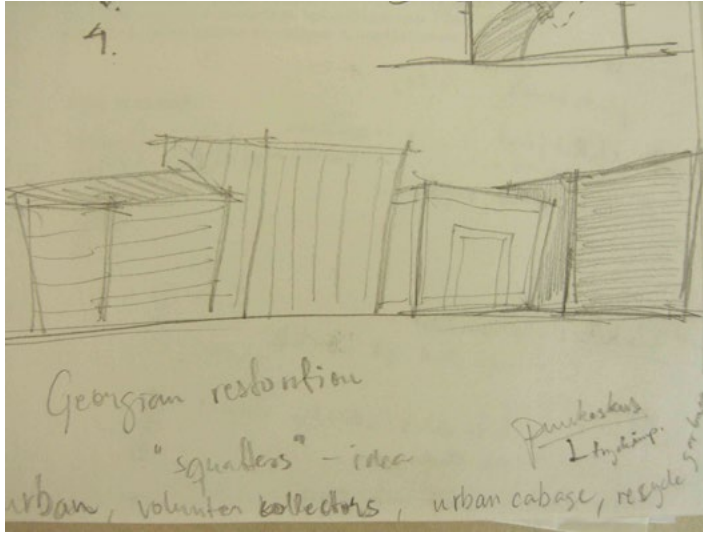 4.
Georgian restoration
"squatters" – idea
urban, volunter collectors, urban cabage, resycle